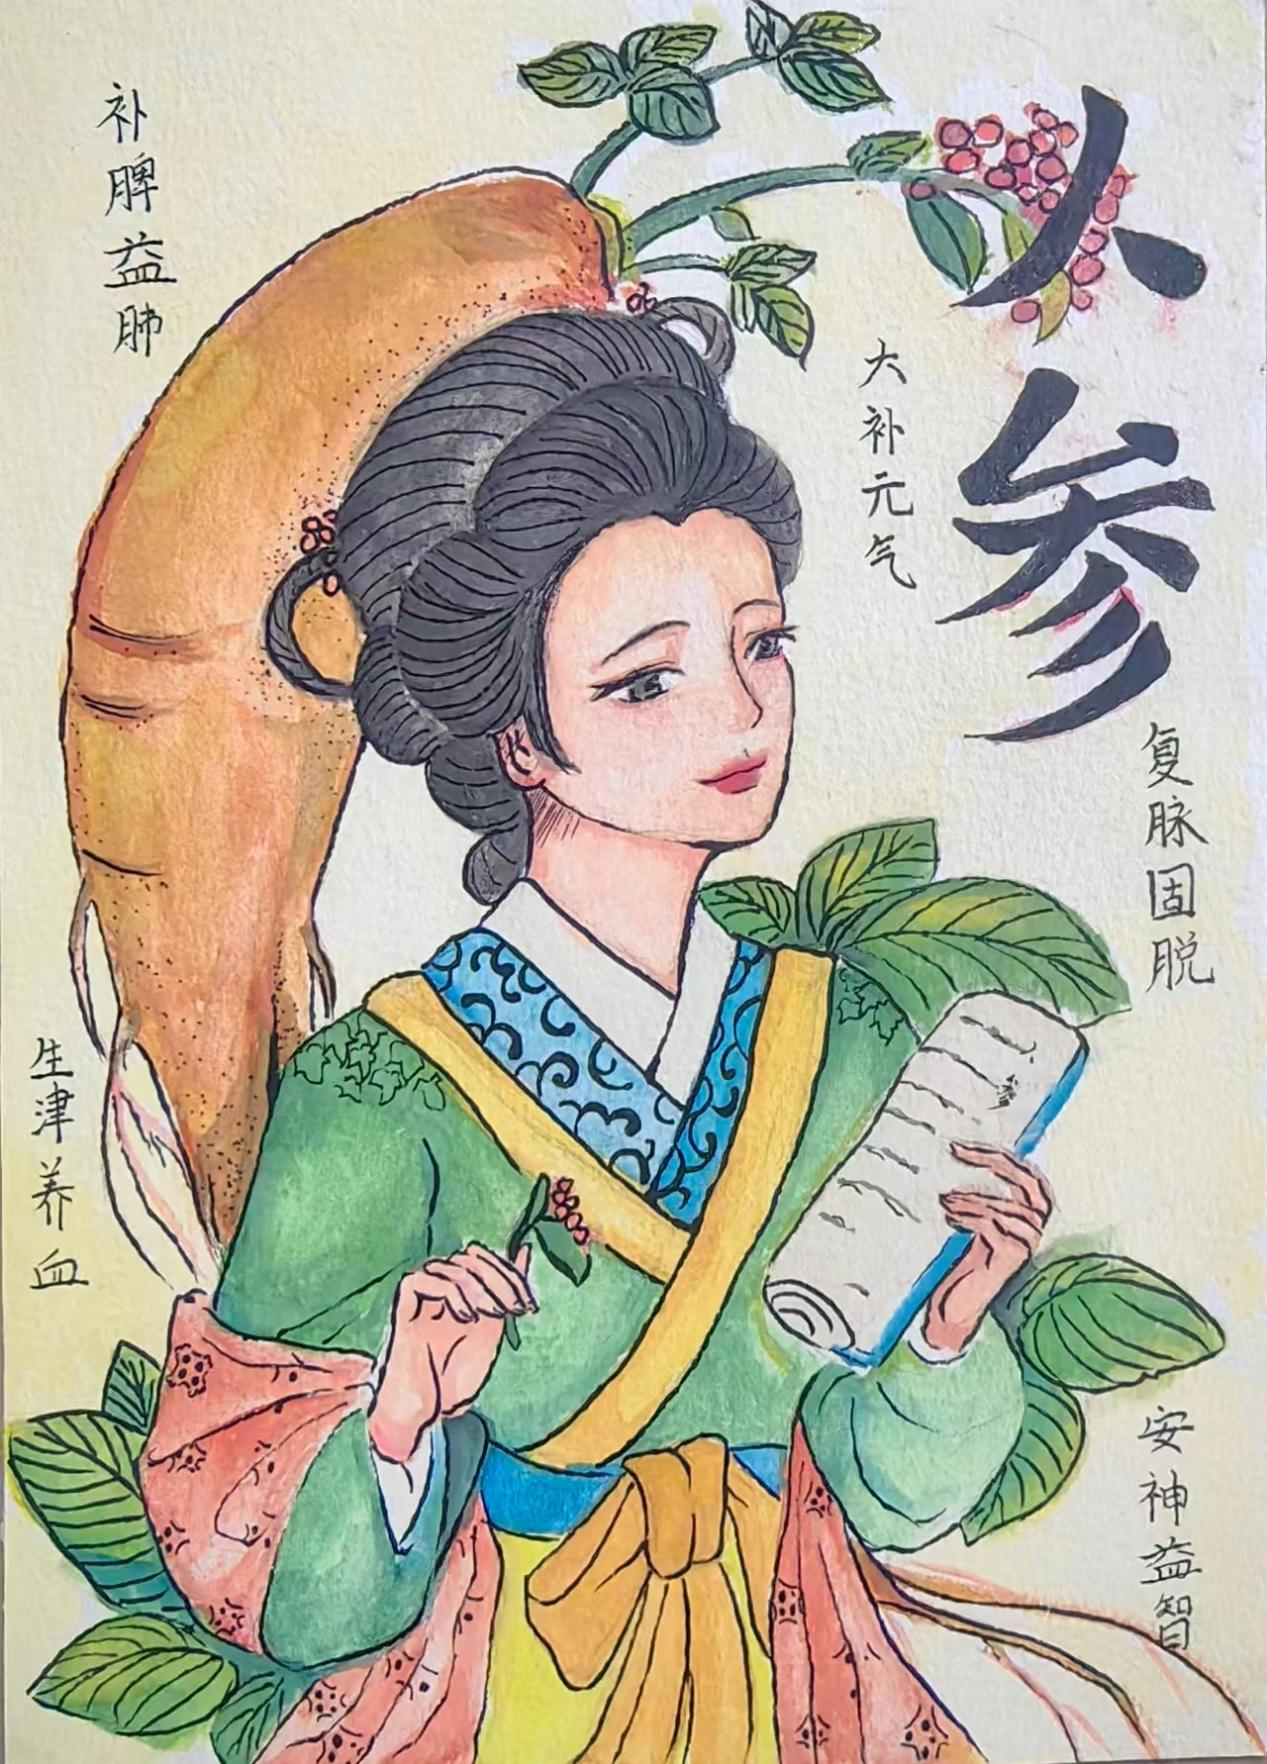 人参
大补元气
复脉固脱
补脾益肺
生津养血
安神益智